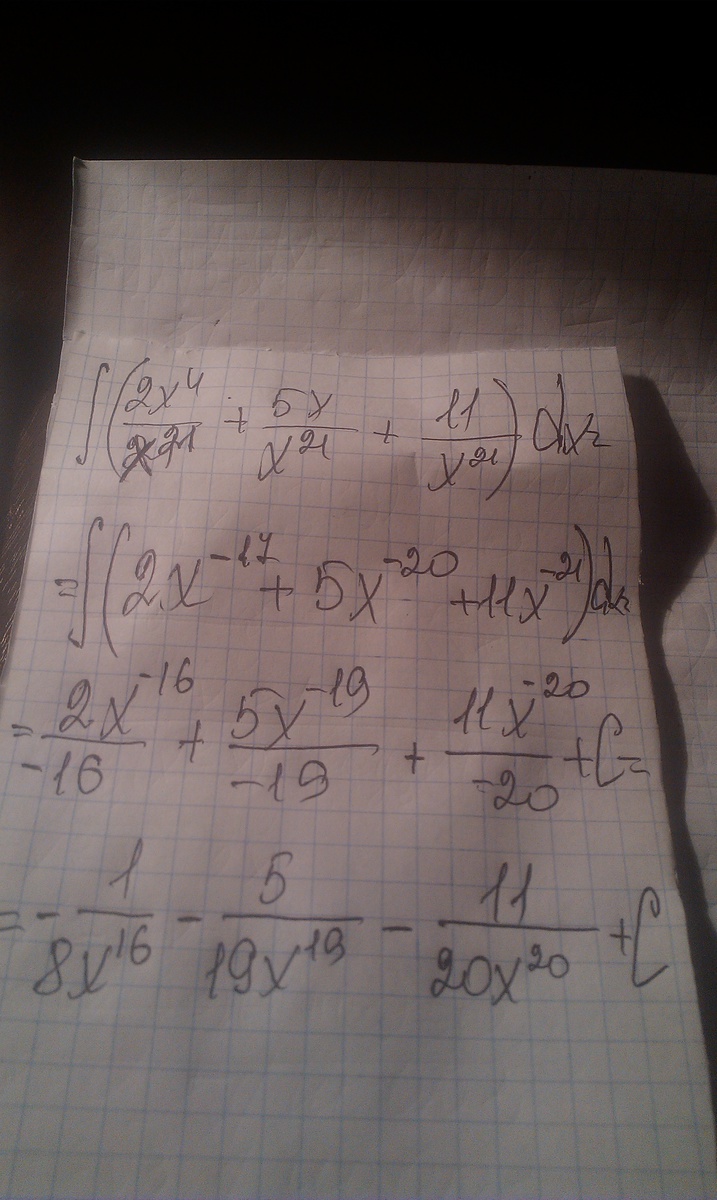 ∫(2x⁴/x²¹ + 5x/x²¹ + 11/x²¹)dx =
= ∫(2x⁻¹⁷ + 5x⁻²⁰ + 11x⁻²¹)dx
= 2x⁻¹⁶/-16 + 5x⁻¹⁹/-19 + 11x⁻²⁰/-20 + C =
= - 1/8x¹⁶ - 5/19x¹⁹ - 11/20x²⁰ + C